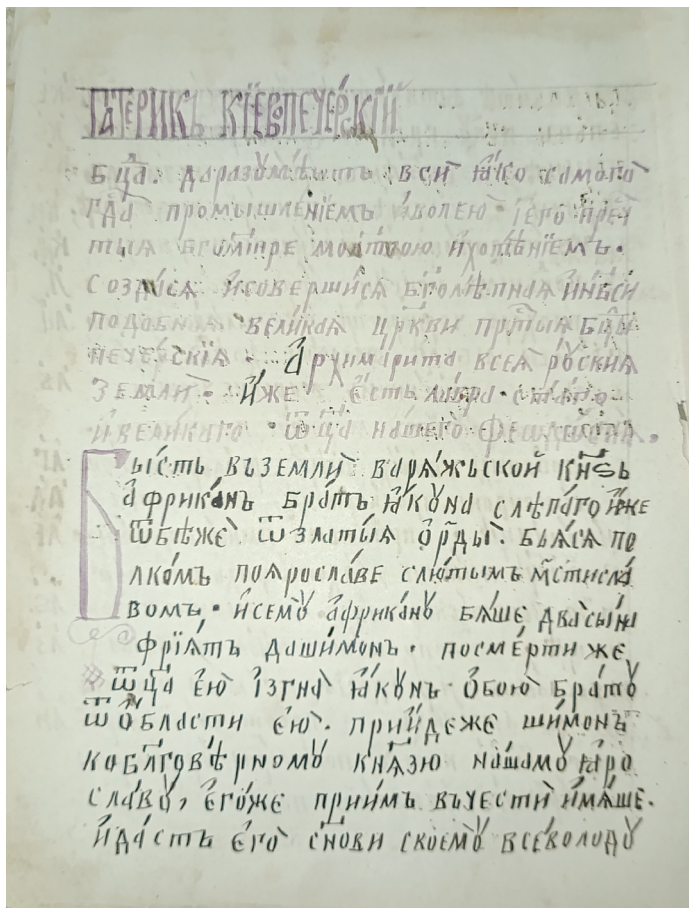 Патерикъ Кїевопече́рскїй
Бц҃а. да разꙋмѣ́ютъ всѝ ꙗ҆́ко самого̀
гдⷭ҇а промышле́нїемъ и҆ волею є҆го̀ пречⷭ҇
тыѧ бг҃ома́тре моли́твою и҆ хотѣ́нїемъ.
созда́сѧ и҆ соверши́сѧ бг҃олѣ́пнаѧ и҆ нбⷭ҇си
подобнаѧ вели́каѧ цр҃кви прⷭ҇тыѧ бцⷣы
пече́рскїѧ. А҆рхимарита всеѧ̀ рѡ́скиѧ
землѝ. и҆́же є҆́сть ла́вра ст҃а́го
и҆ вели́каго ѿц҃а̀ на́шего феѡдо́сиа.
Бы́сть въ землѝ варѧ́жьской кнѕь
а҆фрика́нъ братъ ꙗ҆́кꙋна слѣпа́го и҆́же
ѿбѣжѐ ѿ златы́ѧ о҆рды̀. бьѧ́сѧ по
лко́мъ по ꙗросла́ве слю́тымъ мⷭ҇тисла́
вомъ. и҆ семꙋ̀ а҆фрика́нꙋ бѧ́ше два сы́на
фрїѧ́тъ да ши́монъ. по сме́рти же
ѿц҃а̀ є҆ю̀ і҆згна̀ ꙗ҆кꙋнъ о҆бою̀ бра́тꙋ
ѿ ѻ҆́бласти є҆ю̀. прїи́де же ши́монъ
ко блг҃овѣ́рномꙋ кнѧ́зю на́шамꙋ ꙗ҆ро
сла́вꙋ, є҆го́же прии́мъ въ че́сти и҆мѧ́ше.
и҆ да́сть є҆го̀ сн҃ови скоемꙋ̀ все́володꙋ